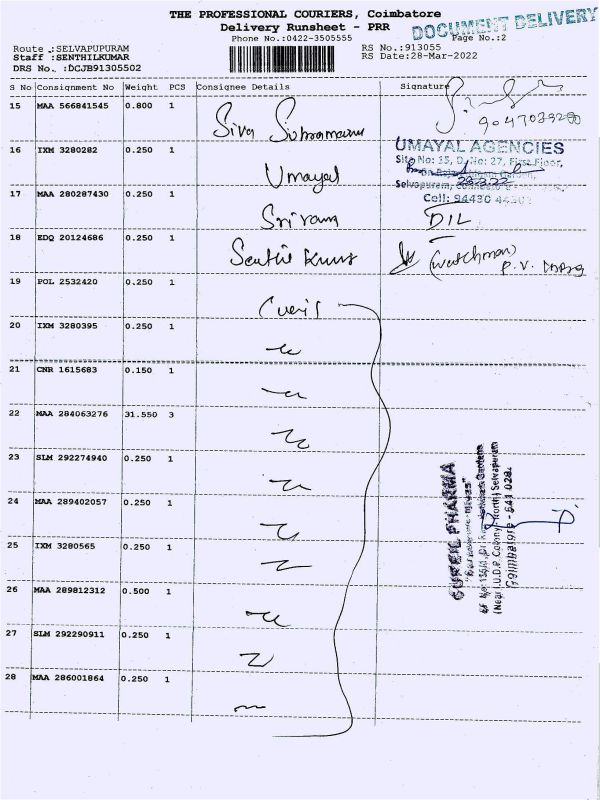 THE PROFESSIONAL COURIERS, Coimbatore
Delivery Runsheet - PRR
DOCUMENT DELIVERY
Phone No.:0422-3505555
Page No.:2
Route :SELVAPUPURAM
RS No.:913055
Staff :SENTHILKUMAR
RS Date:28-Mar-2022
DRS No. :DCJB91305502
S No Consignment No Weight PCS Consignee Details Signature
15 MAA 566841545 0.800 1
Siva Subramani
16 IXM 3280282 0.250 1
Umayal
UMAYAL AGENCIES
Site No: 35, D.No: 27, First Floor,
Selvapuram,
Cell: 94430
17 MAA 280287430 0.250 1
Sriram DIL
18 EDQ 20124686 0.250 1
Senthil Kumar (watchman)
P.V.
19 POL 2532420 0.250 1
20 IXM 3280395 0.250 1
21 CNR 1615683 0.150 1
22 MAA 284063276 31.550 3
23 SLM 292274940 0.250 1
24 MAA 289402057 0.250 1
25 IXM 3280565 0.250 1
26 MAA 289812312 0.500 1
27 SLM 292290911 0.250 1
28 MAA 286001864 0.250 1
CUREIL PHARMA
(Near T.U.D.P. Colony) North) Selvapuram
Coimbatore - 641 026.